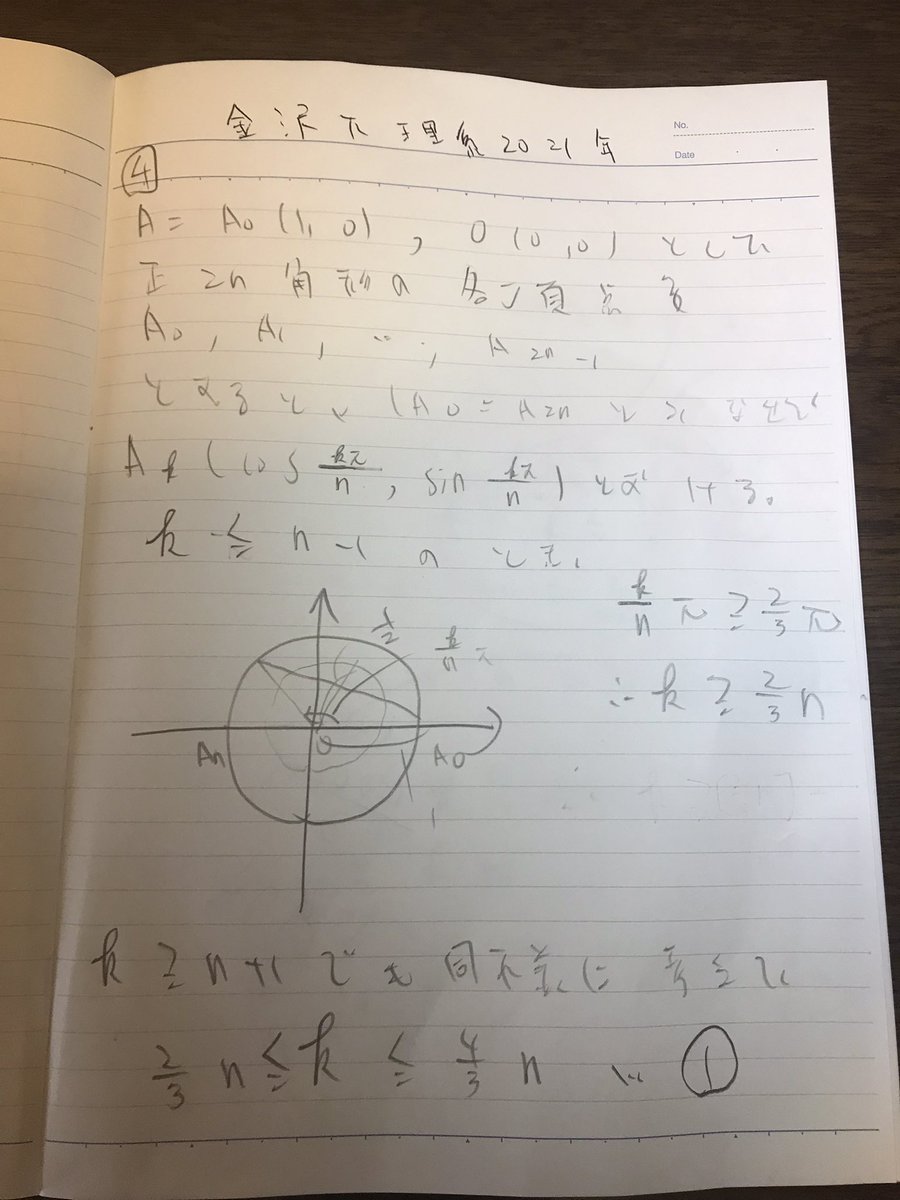 金沢大理系2021年
No.
Date
④
A = A₀(1, 0), O(0, 0)として
正2n角形の各頂点を
A₀, A₁, …, A₂ₙ₋₁
とすると、(A₀ = A₂ₙと
Aₖ(cos kπ/n, sin kπ/n)とおける。
k ≦ n-1のとき、
k/n π ≧ 2/3 π
∴ k ≧ 2/3 n
1/2
k/n π
Aₙ
O
A₀
1
k ≧ n+1でも同様に考えて
2/3 n ≦ k ≦ 4/3 n … ①